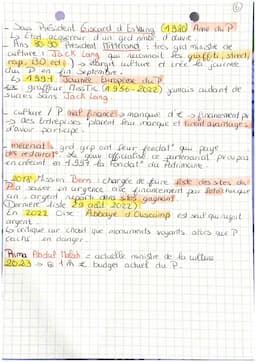 6
- Sous Président Giscard d'Estaing (1980) Anne du P
Ls Etat acquereur d'un grd nmbr d'œuvre.
- Ans 80-90 Président Mitterrand : très grd ministre de
culture : Jack Lang qui reconnait les graffiti, street,
rap, BD ect : → élargit culture et crée la journée
du P en fin septembre.
Ls 1991 : Journée Européenne du P.
ex graffeur MissTic (1956-2022) jamais autant de
succès sans Jack Lang
- culture / P mal finance → manque d' € → financement privé
→ des Entreprises placent leur marque et tirent avantage
d'avoir participé.
- mécénat : grd grp ont leur fondat° qui paye
des restaurat°. Le gouv officialise ce partenariat
en créant en 1997 la fondat° du Patrimoine.
- 2018, Mission Bern : chargée de faire liste des sites du
P à sauver en urgence. aide financement par loto chaque
an, argent reparti dans sites gagnant.
(Dernière liste 29 août 2022)
En 2022 Oise : Abbaye d'Ourscamp est seul qui reçut
argent.
Ls critique car choix que monuments voyants alors que P
caché en danger.
Rima Abdul Malak = actuelle ministre de la culture
2023 → budget actuel du P.